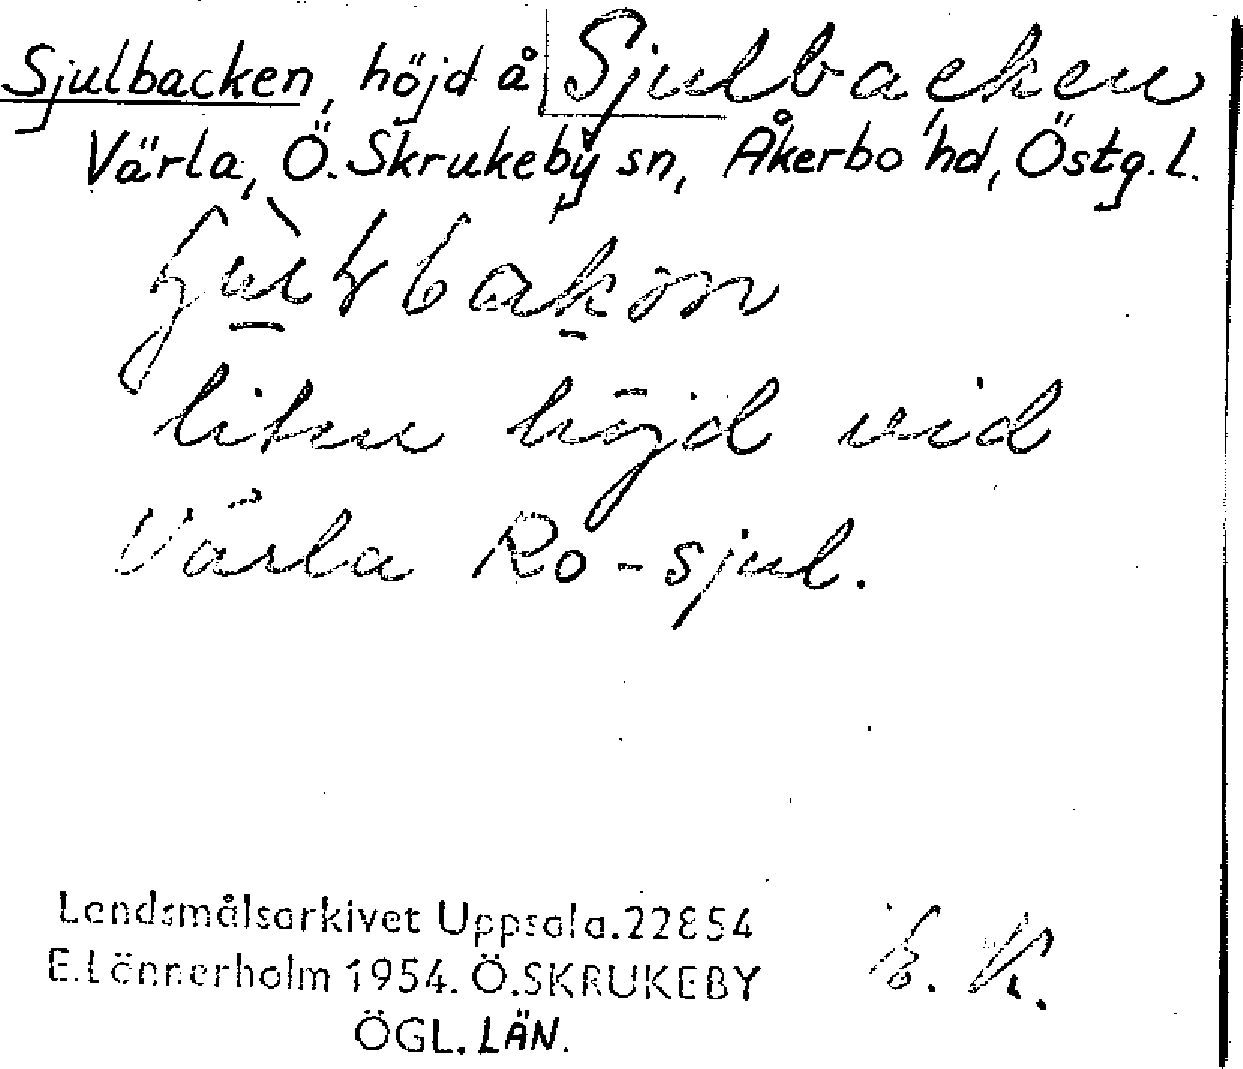 Sjulbacken, höjd å Sjulbacken
Värla, Ö. Skrukeby sn, Åkerbo hd, Östg. l.
liten höjd vid
Värla Ro-sjul.
Landsmålsarkivet Uppsala.22854
E.Lönnerholm 1954. Ö.SKRUKEBY
ÖGL. LÄN.
E. K.